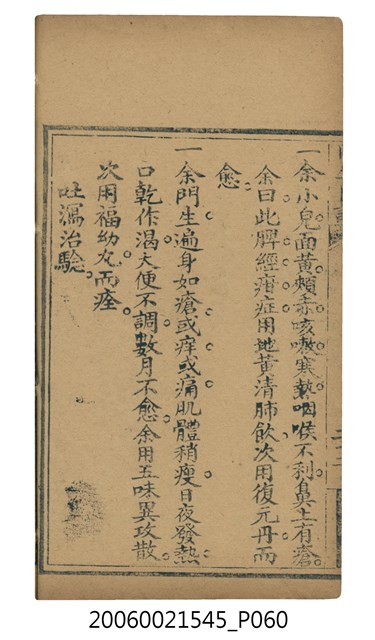 一余小兒面黃頰赤咳嗽寒熱咽喉不利鼻上有瘡
余曰此脾經疳症用地黃清肺飲次用復元丹而
愈
一余門生遍身如瘡或痒或痛肌體稍瘦日夜發熱
口乾作渴大便不調數月不愈余用五味異攻散
次用福幼丸而痊
吐瀉治驗
20060021545_P060